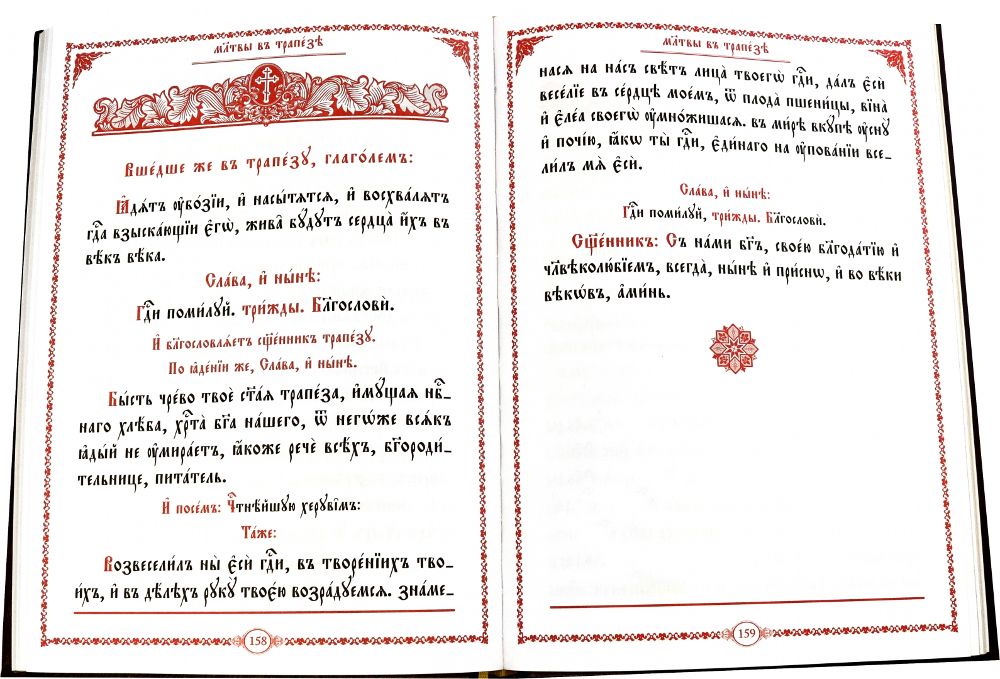 мл҃твы въ трапе́зѣ
Вше́дше же въ трапе́зу, глаго́лемъ:
Ꙗ҆дѧ́тъ ᲂу҆бо́зїи, и҆ насы́тѧтсѧ, и҆ восхва́лѧтъ
гдⷭ҇а взыска́ющїи є҆го̀, жива̑ бу́дутъ сердца̀ и҆́хъ въ
вѣ́къ вѣ́ка.
Сла́ва, и҆ ны́нѣ:
Гдⷭ҇и поми́луй. три́жды. Бл҃гословѝ.
И҆ бл҃гословлѧ́етъ сщ҃е́нникъ трапе́зу.
По ꙗ҆де́нїи же, Сла́ва, и҆ ны́нѣ.
Бы́сть чре́во твоѐ ст҃а́ѧ трапе́за, и҆мꙋ́щаѧ нбⷭ҇_
наго хлѣ́ба, хрⷭ҇та̀ бг҃а на́шего, ѿ негѡ́же всѧ́къ
ꙗ҆ды́й не ᲂу҆мира́етъ, ꙗ҆́коже речѐ всѣ́хъ, бг҃ороди́_
тельнице, пита́тель.
И҆ посе́мъ: Чтⷭ҇нѣ́йшую херꙋві̑мъ:
Та́же:
Возвесели́лъ ны̀ є҆сѝ гдⷭ҇и, въ творе́нїихъ тво_
и́хъ, и҆ въ дѣ́лѣхъ рꙋкꙋ̀ твоє́ю возра́дꙋемсѧ. зна́ме_
158
мл҃твы въ трапе́зѣ
насѧ на на́съ свѣ́тъ лица̀ твоегѡ̀ гдⷭ҇и, да́лъ є҆сѝ
весе́лїе въ се́рдцѣ мое́мъ, ѿ плода̀ пшени́цы, вїна̀
и҆ є҆ле́а своегѡ̀ ᲂу҆мно́жишасѧ. въ ми́рѣ вкꙋ́пѣ ᲂу҆снꙋ̀
и҆ почі́ю, ꙗ҆́кѡ ты̀ гдⷭ҇и, є҆ди́наго на ᲂу҆пова́нїи все_
ли́лъ мѧ̀ є҆сѝ.
Сла́ва, и҆ ны́нѣ:
Гдⷭ҇и поми́луй, три́жды. Бл҃гословѝ.
Сщ҃е́нникъ: Съ на́ми бг҃ъ, свое́ю бл҃года́тїю и҆
чл҃вѣколю́бїемъ, всегда̀, ны́нѣ и҆ при́снѡ, и҆ во вѣ́ки
вѣкѡ́въ, а҆ми́нь.
159